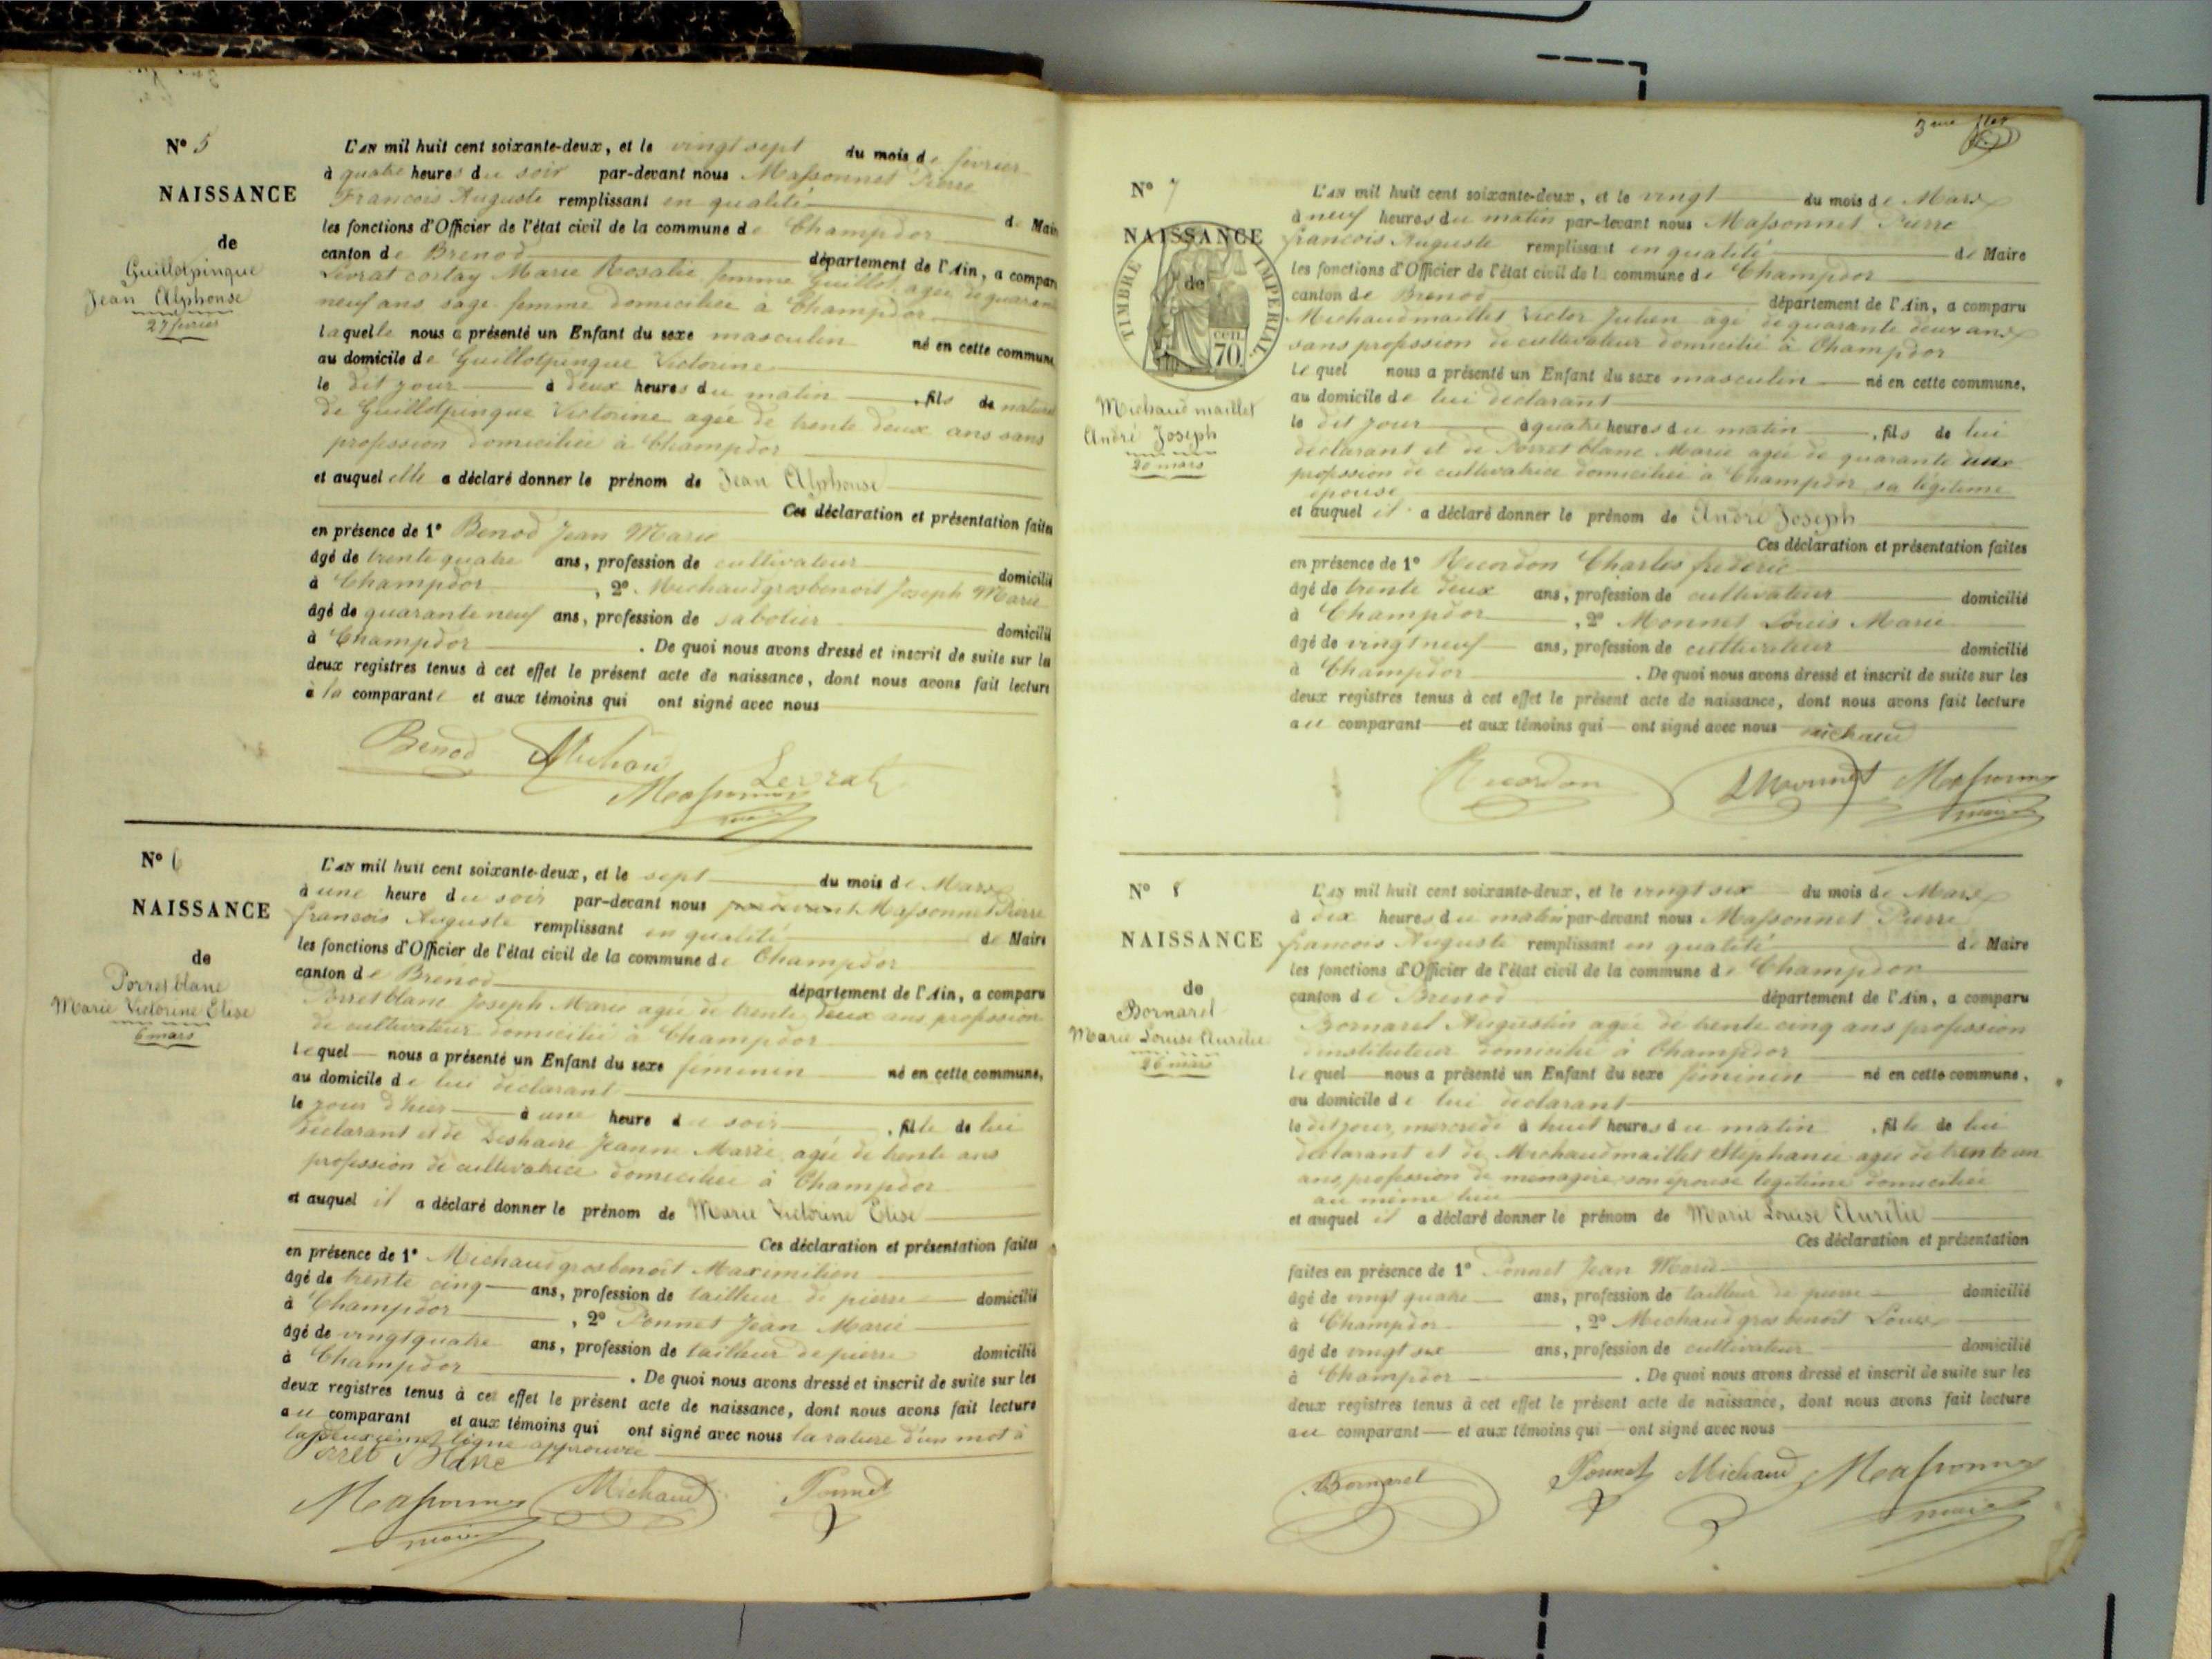 N° 5
NAISSANCE
de
Guillotpinque
Jean Alphonse
27 février
L'AN mil huit cent soixante-deux, et le vingt sept du mois de février
à quatre heures du soir par-devant nous Massonnet Pierre
François Auguste remplissant en qualité de Maire
les fonctions d'Officier de l'état civil de la commune de Champdor
canton de Brenod département de l'Ain, a compar
Levrat cortay Marie Rosalie femme Guillot, agée de quarante
neuf ans sage-femme domiciliée à Champdor
laquelle nous a présenté un Enfant du sexe masculin né en cette commune
au domicile de Guillotpinque Victorine
le dit jour à deux heures du matin, fils de naturel
de Guillotpinque Victorine agée de trente deux ans sans
profession domiciliée à Champdor
et auquel elle a déclaré donner le prénom de Jean Alphonse
Ces déclaration et présentation faites
en présence de 1° Benod Jean Marie
âgé de trente quatre ans, profession de cultivateur domicilié
à Champdor, 2° Michaudgrosbenoit Joseph Marie
âgé de quarante neuf ans, profession de sabotier domicilié
à Champdor. De quoi nous avons dressé et inscrit de suite sur les
deux registres tenus à cet effet le présent acte de naissance, dont nous avons fait lecture
à la comparante et aux témoins qui ont signé avec nous
Benod Michaud Levrat
Massonnet
maire
N° 6
NAISSANCE
de
Porretblanc
Marie Victorine Elise
6 mars
L'AN mil huit cent soixante-deux, et le sept du mois de Mars
à une heure du soir par-devant nous Massonnet Pierre
françois Auguste remplissant en qualité de Maire
les fonctions d'Officier de l'état civil de la commune de Champdor
canton de Brenod département de l'Ain, a comparu
Porretblanc Joseph Marie agé de trente deux ans profession
de cultivateur domicilié à Champdor
lequel nous a présenté un Enfant du sexe féminin né en cette commune,
au domicile de lui déclarant
le jour d'hier à une heure du soir, fille de lui
déclarant et de Deshaire Jeanne Marie agée de trente ans
profession de cultivatrice domiciliée à Champdor
et auquel il a déclaré donner le prénom de Marie Victorine Elise
Ces déclaration et présentation faites
en présence de 1° Michaudgrosbenoit Maximilien
âgé de trente cinq ans, profession de tailleur de pierre domicilié
à Champdor, 2° Ponnet Jean Marie
âgé de vingt quatre ans, profession de tailleur de pierre domicilié
à Champdor. De quoi nous avons dressé et inscrit de suite sur les
deux registres tenus à cet effet le présent acte de naissance, dont nous avons fait lecture
au comparant et aux témoins qui ont signé avec nous la rature d'un mot à
la deuxième ligne approuvée
Porret Blanc
Massonnet Michaud Ponnet
maire
3me
N° 7
NAISSANCE
de
TIMBRE IMPERIAL
70 cen
Michaudmaillet
André Joseph
20 mars
L'AN mil huit cent soixante-deux, et le vingt du mois de Mars
à neuf heures du matin par-devant nous Massonnet Pierre
françois Auguste remplissant en qualité de Maire
les fonctions d'Officier de l'état civil de la commune de Champdor
canton de Brenod département de l'Ain, a comparu
Michaudmaillet Victor Julien agé de quarante deux ans
sans profession de cultivateur domicilié à Champdor
lequel nous a présenté un Enfant du sexe masculin né en cette commune,
au domicile de lui déclarant
le dit jour à quatre heures du matin, fils de lui
déclarant et de Porret blanc Marie agée de quarante
profession de cultivatrice domiciliée à Champdor, sa légitime
épouse
et auquel il a déclaré donner le prénom de André Joseph
Ces déclaration et présentation faites
en présence de 1° Ricordon Charles frederic
âgé de trente deux ans, profession de cultivateur domicilié
à Champdor, 2° Monnet Louis Marie
âgé de vingt neuf ans, profession de cultivateur domicilié
à Champdor. De quoi nous avons dressé et inscrit de suite sur les
deux registres tenus à cet effet le présent acte de naissance, dont nous avons fait lecture
au comparant et aux témoins qui ont signé avec nous michaud
Ricordon LMonnet Massonnet
maire
N° 8
NAISSANCE
de
Bornarel
Marie Louise Aurélie
26 mars
L'AN mil huit cent soixante-deux, et le vingt six du mois de Mars
à dix heures du matin par-devant nous Massonnet Pierre
françois Auguste remplissant en qualité de Maire
les fonctions d'Officier de l'état civil de la commune de Champdor
canton de Brenod département de l'Ain, a comparu
Bornarel Augustin agé de trente cinq ans profession
d'instituteur domicilié à Champdor
lequel nous a présenté un Enfant du sexe féminin né en cette commune,
au domicile de lui déclarant
le dit jour, mercredi à huit heures du matin, fille de lui
déclarant et de Michaudmaillet Stéphanie agée de trente un
ans, profession de ménagère, son épouse légitime domiciliée
au même lieu
et auquel il a déclaré donner le prénom de Marie Louise Aurélie
Ces déclaration et présentation
faites en présence de 1° Ponnet Jean Marie
âgé de vingt quatre ans, profession de tailleur de pierre domicilié
à Champdor, 2° Michaud gros benoit Louis
âgé de vingt six ans, profession de cultivateur domicilié
à Champdor. De quoi nous avons dressé et inscrit de suite sur les
deux registres tenus à cet effet le présent acte de naissance, dont nous avons fait lecture
au comparant et aux témoins qui ont signé avec nous
Bornarel Ponnet Michaud Massonnet
maire